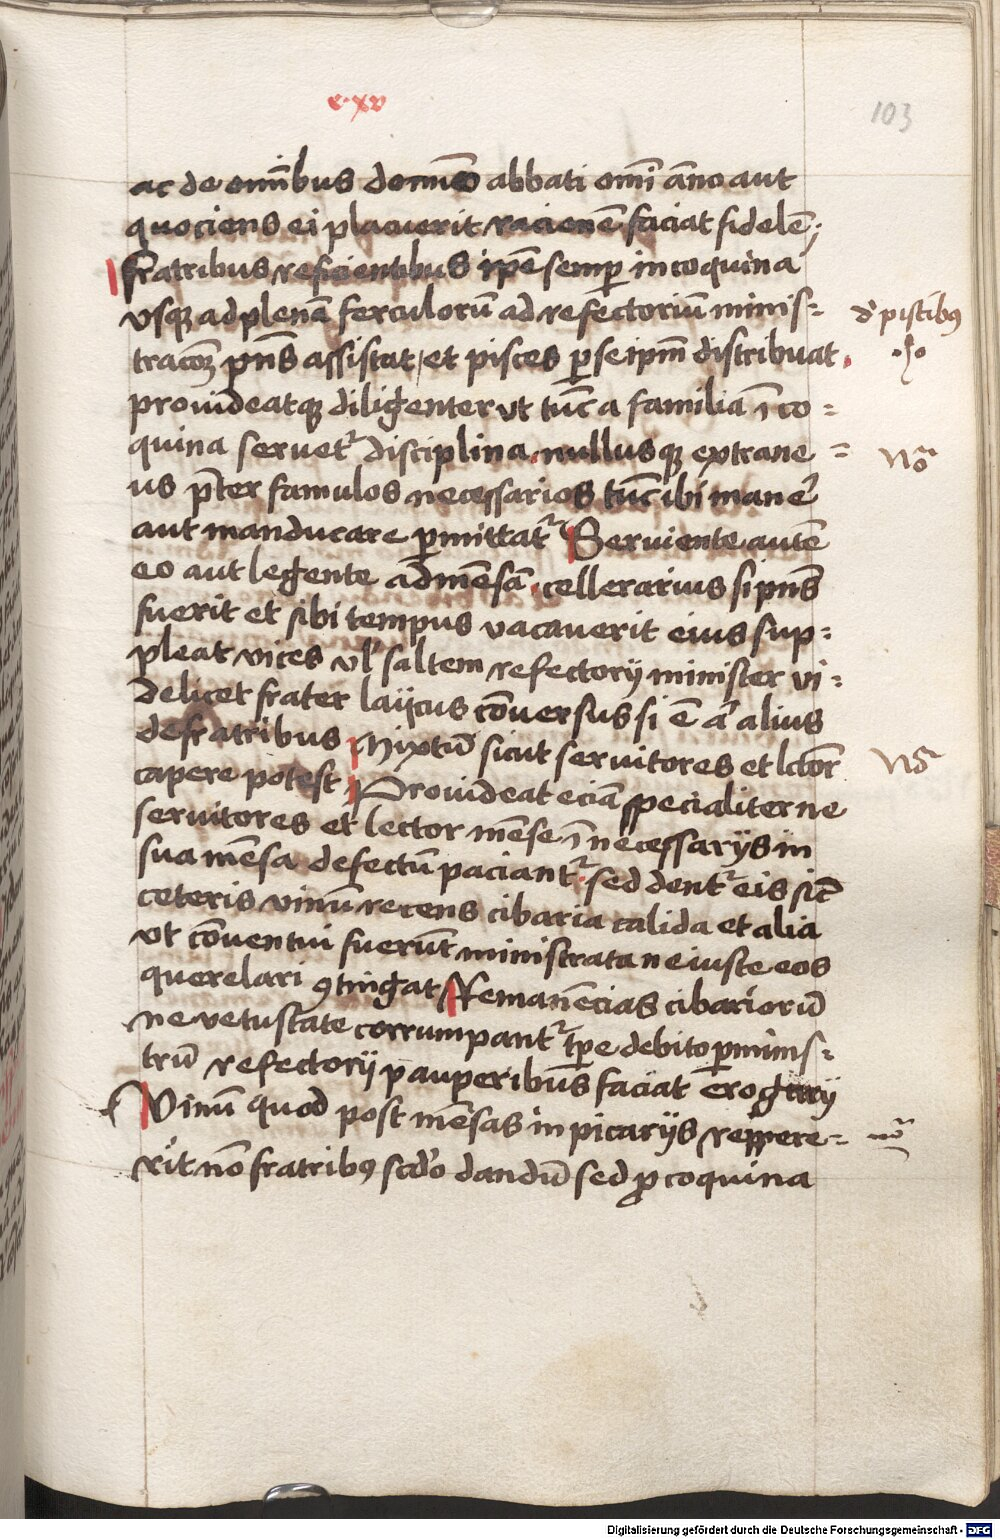 c·xv
103
ac de om̄ibus domno abbati om̄i āno aut
quociens ei placuerit racionē faciat fidelē;
fratribus reficientibus ip̄e semꝑ in coquina
vsqꝫ ad plenā ferculorū ad refectoriūm minis-
tracōꝫ pn̄s assistat, et pisces ꝑ seipm̄ distribuat.
d' piscibꝰ
prouideatqꝫ diligenter vt tūc a familia ī co-
quina seruet᷑ disciplina. nullusqꝫ extrane-
no͞
us p̄ter famulos necessarios tūc ibi manē
aut manducare ꝑmittat᷑ Seruiente autē
eo aut legente ad mēsā. cellerarius si pn̄s
fuerit et sibi tempus vacauerit eius sup-
pleat vices vl' saltem refectorij minister vi-
delicet frater laijcus cōuersus si ē aꝉ alius
de fratribus Mixtū sicut seruitores et lcōr
no͞
capere potest Prouideat eciā specialiter ne
seruitores et lector mēse ī necessarijs in
sua mēsa defectū paciant᷑. sed dent᷑ eis sic̄
ceteris vinū recens cibaria calida et alia
vt cōuentui fuerūt ministrata ne iuste eos
querelari ꝯtingat Remanēcias cibariorū
ne vetustate corrumpant᷑ tp̄e debito ꝑ minis-
trū refectorij pauperibus faciat erogary
Vinū quod post mēsas in picarijs reppere-
no͞
rit nō fratribꝰ scd̄o dandū sed ꝓ coquina
Digitalisierung gefördert durch die Deutsche Forschungsgemeinschaft - DFG